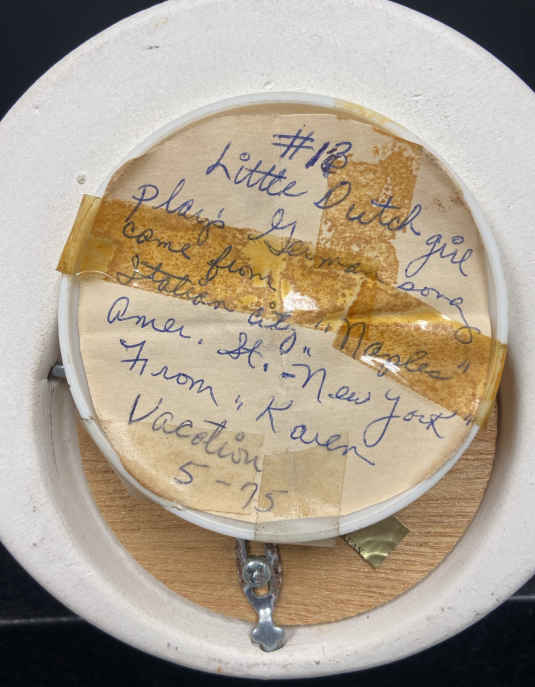 #18
Little Dutch girl
plays German song
come from
Italian city "Naples"
Amer. St. - New York"
From "Karen
Vacation
5-75